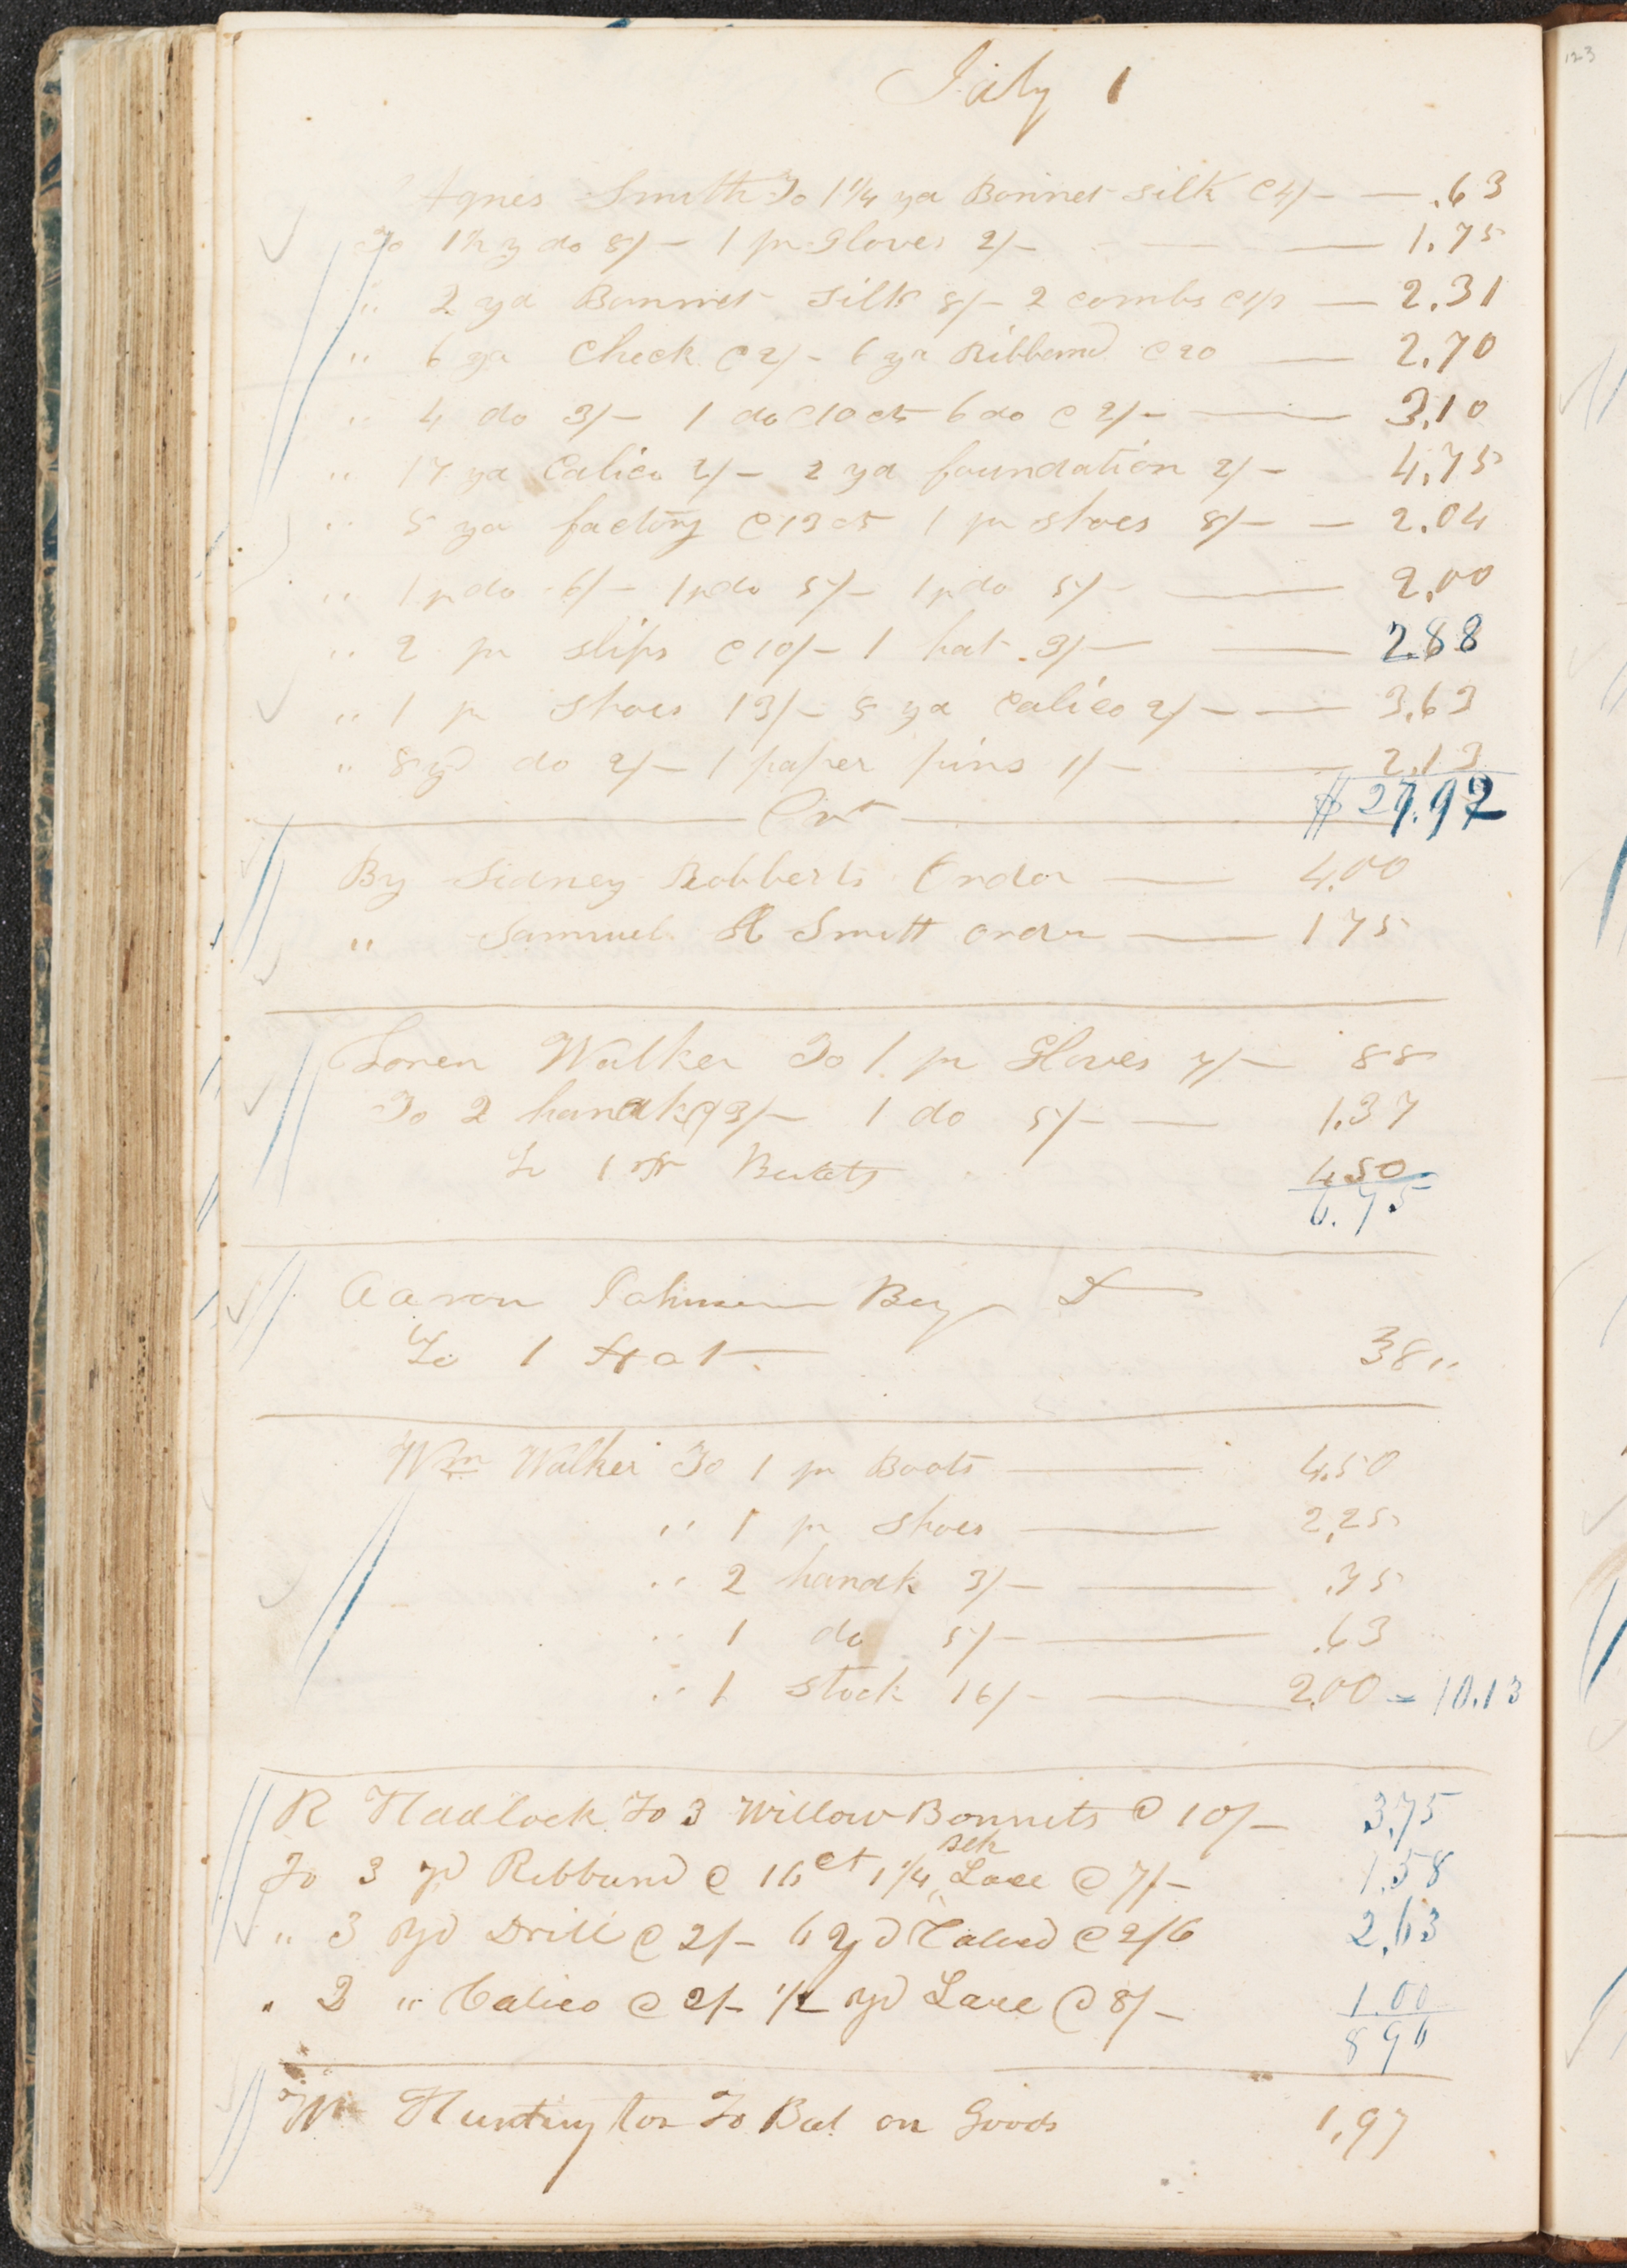 July 1
123
Agnes Smith To 1 1/4 yd Bonnet silk @ 4/- — .63
To 1 1/2 y do 8/- 1 pr Gloves 2/- — 1.75
" 2 yd Bonnet Silk 8/- 2 combs — 2.31
" 6 yd Check @ 2/- 6 yd Ribband @ 20 — 2.70
" 4 do 3/- 1 do @ 10 cts 6 do @ 2/- — 3.10
" 17 yd Calico 2/- 2 yd foundation 2/- 4.75
" 8 yd factory @ 13 cts 1 pr shoes 8/- — 2.04
" 1 pr do 6/- 1 pr do 5/- 1 pr do 5/- — 2.00
" 2 pr slips @ 10/- 1 hat 3/- — 2.88
" 1 pr shoes 13/- 8 yd Calico 2/- — 3.63
" 8 yd do 2/- 1 paper pins 1/- — 2.13
$27.92
Cr
By Sidney Robberts Order — 4.00
" Samuel H Smith order — 1 75
Loren Walker To 1 pr Gloves 7/- 88
To 2 handk @ 3/- 1 do 5/- — 1.37
To 1 Pr Boots 4 50
6.75
Aaron Johnson By D
To 1 Hat 38"
Wm Walker To 1 pr Boots — 4.50
" 1 pr shoes — 2.25
" 2 handk 3/- — .75
" 1 do 5/- — .63
" 1 stock 16/- — 2.00 = 10.13
R Hadlock To 3 Willow Bonnets @ 10/- 3.75
To 3 yd Ribbund @ 16 ct 1 1/4 Blk Lace @ 7/- 1.58
" 3 yd Drill @ 2/- 6 yd @ 2/6 2.63
" 2 " Calico @ 2/- 1/2 yd Lace @ 8/- 1.00
8 96
Wm Huntington To Bal on Goods 1,97